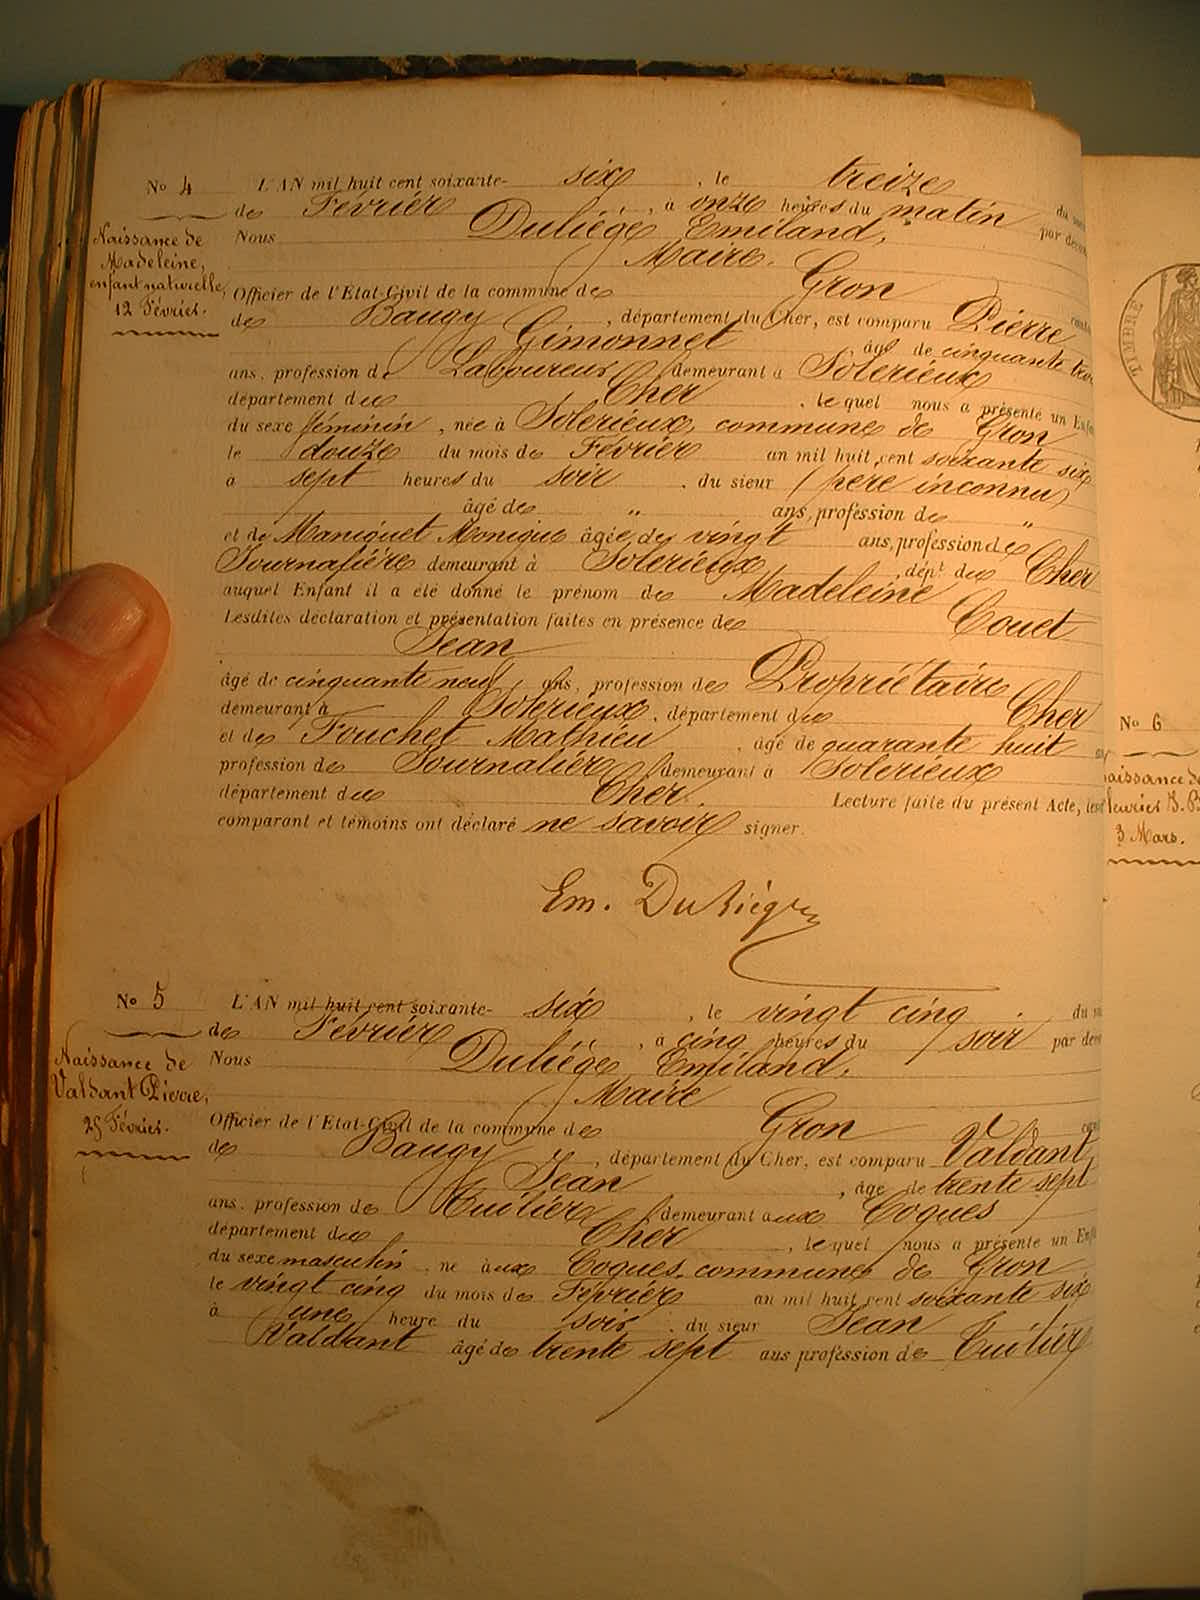 No 4
Naissance de
Madeleine,
enfant naturelle,
12 Février.
L'AN mil huit cent soixante- six, le treize
de Février, à onze heures du matin du
Nous Duliége Emiland, par
Maire.
Officier de l'Etat-Civil de la commune de Gron
de Baugy, département du Cher, est comparu Pierre
Gimonnet âgé de cinquante
ans, profession de Laboureur demeurant à Solerieux
département de Cher, lequel nous a présenté un
du sexe féminin, née à Solerieux, commune de Gron
le douze du mois de Février an mil huit cent soixante six
à sept heures du soir, du sieur (père inconnu)
âgé de " ans, profession de "
et de Maniquet Monique âgée de vingt ans, profession de
Journalière demeurant à Solerieux, dépt. de Cher
auquel Enfant il a été donné le prénom de Madeleine
Lesdites déclaration et présentation faites en présence de Couet
Jean
âgé de cinquante neuf ans, profession de Propriétaire
demeurant à Solerieux, département de Cher
et de Fouchet Mathieu, âgé de quarante huit
profession de Journalier demeurant à Solerieux
département de Cher. Lecture faite du présent Acte,
comparant et témoins ont déclaré ne savoir signer.
Em. Duliége
No 5
Naissance de
Valdant Pierre,
25 Février.
L'AN mil huit cent soixante- six, le vingt cinq du
de Février, à cinq heures du soir par
Nous Duliége Emiland,
Maire
Officier de l'Etat-Civil de la commune de Gron
de Baugy, département du Cher, est comparu Valdant
Jean, âgé de trente sept
ans, profession de Tuilier demeurant aux Coques
département de Cher, lequel nous a présenté un
du sexe masculin, né aux Coques, commune de Gron
le vingt cinq du mois de Février an mil huit cent soixante six
à une heure du soir, du sieur Jean
Valdant âgé de trente sept ans profession de Tuilier
TIMBRE
No 6
3 Mars.